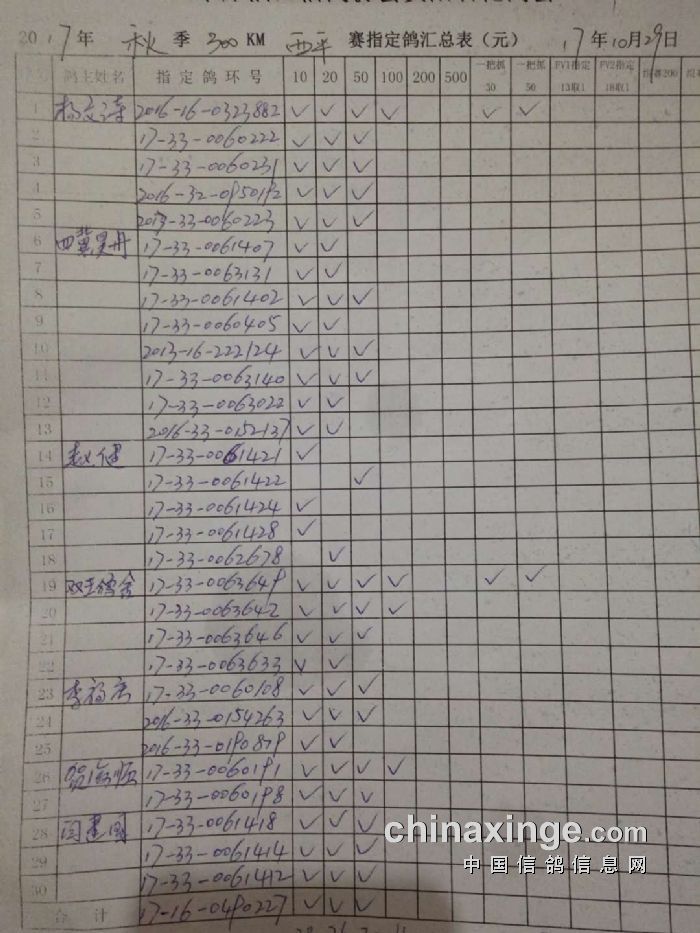 2017年 秋 季 300 KM 西平 赛指定鸽汇总表（元） 17年10月29日
序号 鸽主姓名 指定鸽环号 10 20 50 100 200 500 一把抓30 一把抓50 FV1指定13取1 FV2指定18取1
1 2016-16-0323882 ✓ ✓ ✓ ✓ ✓ ✓
2 17-33-0060222 ✓ ✓ ✓
3 17-33-0060231 ✓ ✓ ✓
4 2016-32-0950192 ✓ ✓ ✓
5 2013-33-0060223 ✓ ✓ ✓
6 四冀昊丹 17-33-0061407 ✓ ✓
7 17-33-0063131 ✓ ✓
8 17-33-0061402 ✓ ✓ ✓
9 17-33-0060405 ✓ ✓
10 2013-16-222124 ✓ ✓ ✓
11 17-33-0063140 ✓ ✓ ✓
12 17-33-0063022 ✓ ✓
13 2016-33-0152137 ✓ ✓
14 赵健 17-33-0061421 ✓
15 17-33-0061422 ✓
16 17-33-0061424 ✓
17 17-33-0061428 ✓
18 17-33-0062678 ✓
19 双王鸽舍 17-33-0063649 ✓ ✓ ✓ ✓ ✓ ✓
20 17-33-0063642 ✓ ✓ ✓ ✓
21 17-33-0063646 ✓ ✓ ✓
22 17-33-0063633 ✓ ✓
23 李福 17-33-0060108 ✓ ✓ ✓
24 2016-33-0154263 ✓ ✓ ✓
25 2016-33-0190879 ✓ ✓
26 贺海顺 17-33-0060191 ✓ ✓ ✓ ✓
27 17-33-0060198 ✓ ✓ ✓
28 闫建国 17-33-0061418 ✓ ✓ ✓
29 17-33-0061414 ✓ ✓ ✓
30 17-33-0061412 ✓ ✓ ✓
合 计 17-16-0490227 ✓ ✓ ✓
chinaxinge.com
中国信鸽信息网